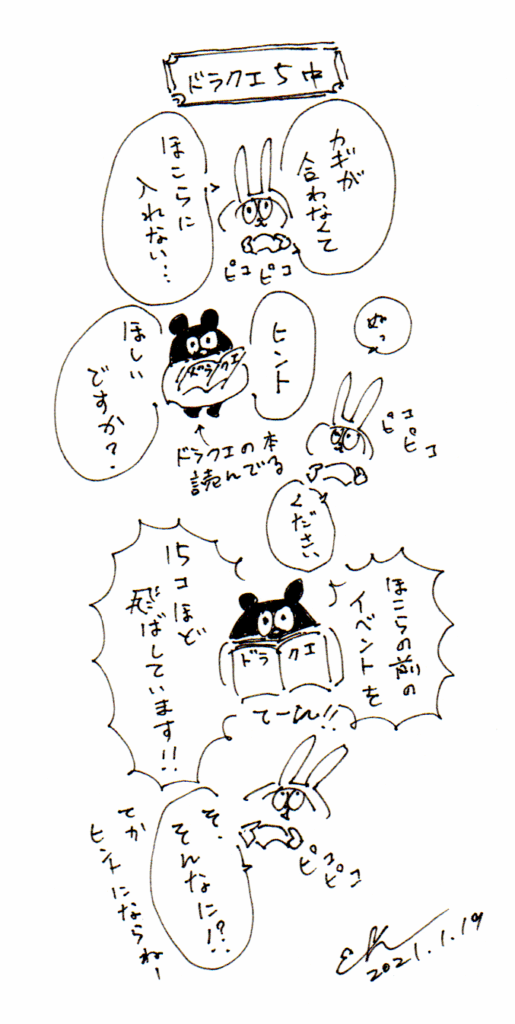 ドラクエ5中
カギが
合わなくて
ほこらに
入れない…
ピコピコ
ヒント
ほしい
ですか?
ドラクエ
ドラクエの本
読んでる
ぬっ
ピコピコ
ください
ほこらの前の
イベントを
15コほど
飛ばしています!!
ドラクエ
てーん!!
そ、
そんなに!?
ピコピコ
てか
ヒントにならねー
EK
2021.1.19